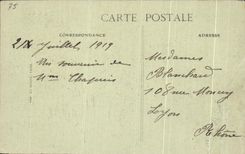 75
CARTE POSTALE
CORRESPONDANCE
ADRESSE
Juillet 1919
Un souvenir de
Mme Chapuis
Mesdames
Blanchard
108 rue Moncey
Lyon
Rhône